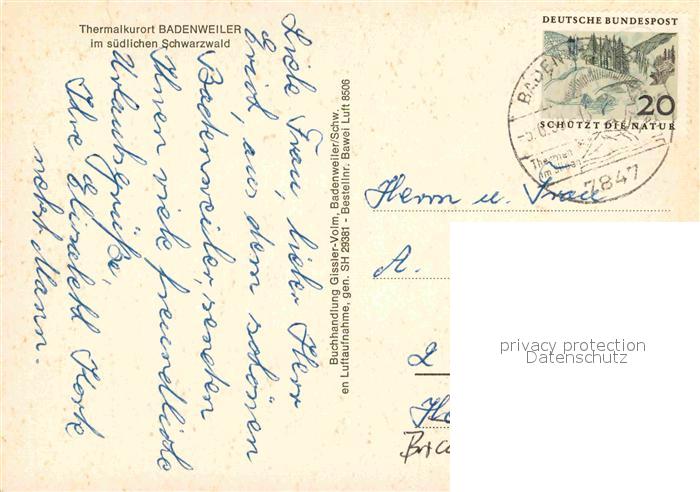 Thermalkurort BADENWEILER
im südlichen Schwarzwald
Liebe Frau, lieber Herr
aus dem schönen
Badenweiler senden
Ihnen viele freundliche
Urlaubsgrüße,
Ihre Elisabeth
nebst Mann.
Buchhandlung Gissler-Volm, Badenweiler/Schw.
en Luftaufnahme, gen. SH 29381 - Bestellnr. Bawei Luft 8506
DEUTSCHE BUNDESPOST
20
SCHÜTZT DIE NATUR
7847
Herrn u. Frau
A.
2
privacy protection
Datenschutz